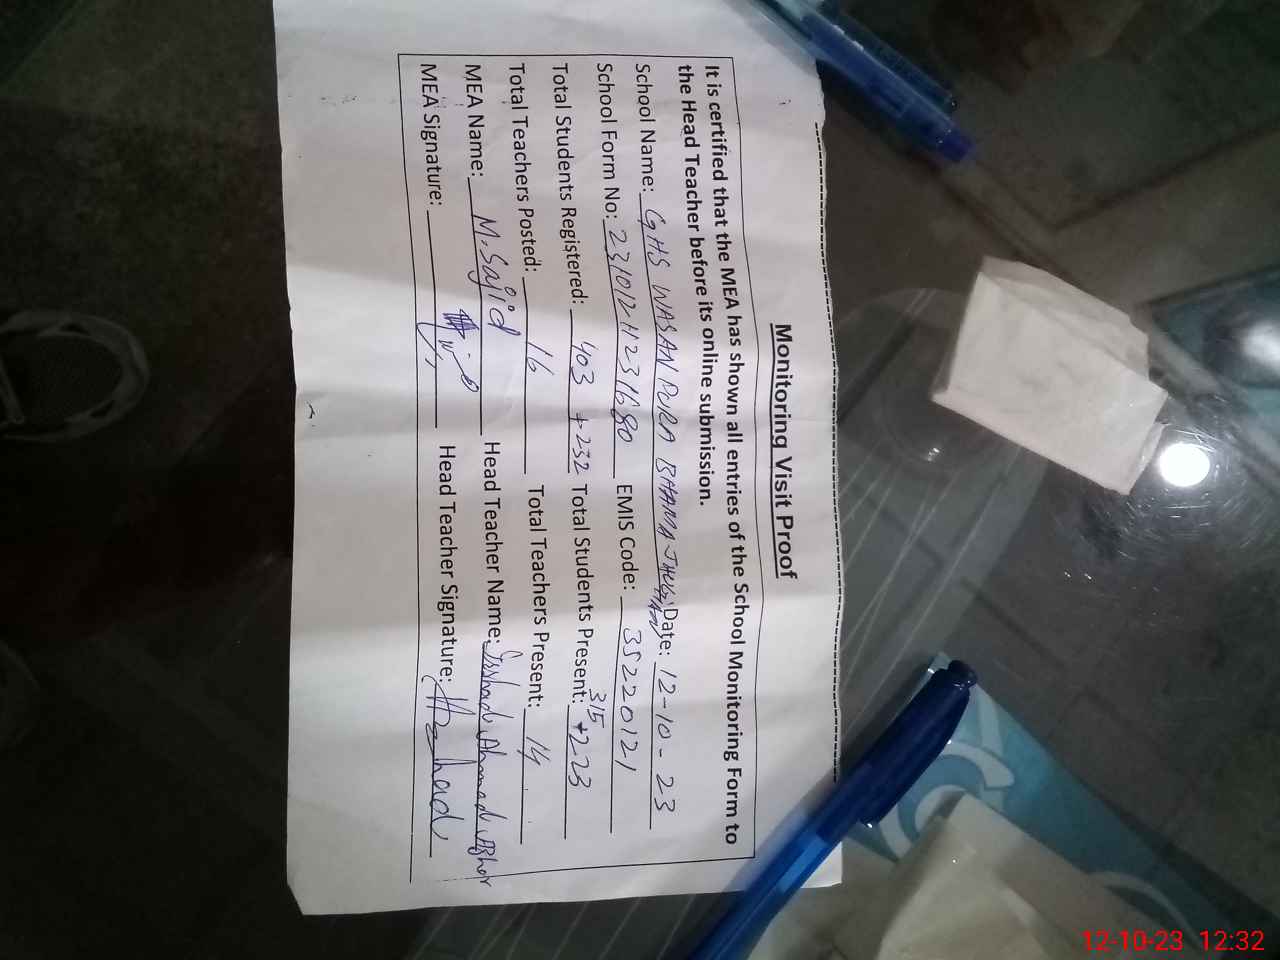 Monitoring Visit Proof
It is certified that the MEA has shown all entries of the School Monitoring Form to
the Head Teacher before its online submission.
School Name: GHS WASAN PURA BHAMA Date: 12-10-23
School Form No: 23101211231680 EMIS Code: 35220121
Total Students Registered: 403 + 232 Total Students Present: 315 + 223
Total Teachers Posted: 16 Total Teachers Present: 14
MEA Name: M. Sajid Head Teacher Name: Ahmad
MEA Signature: Head Teacher Signature:
12-10-23 12:32